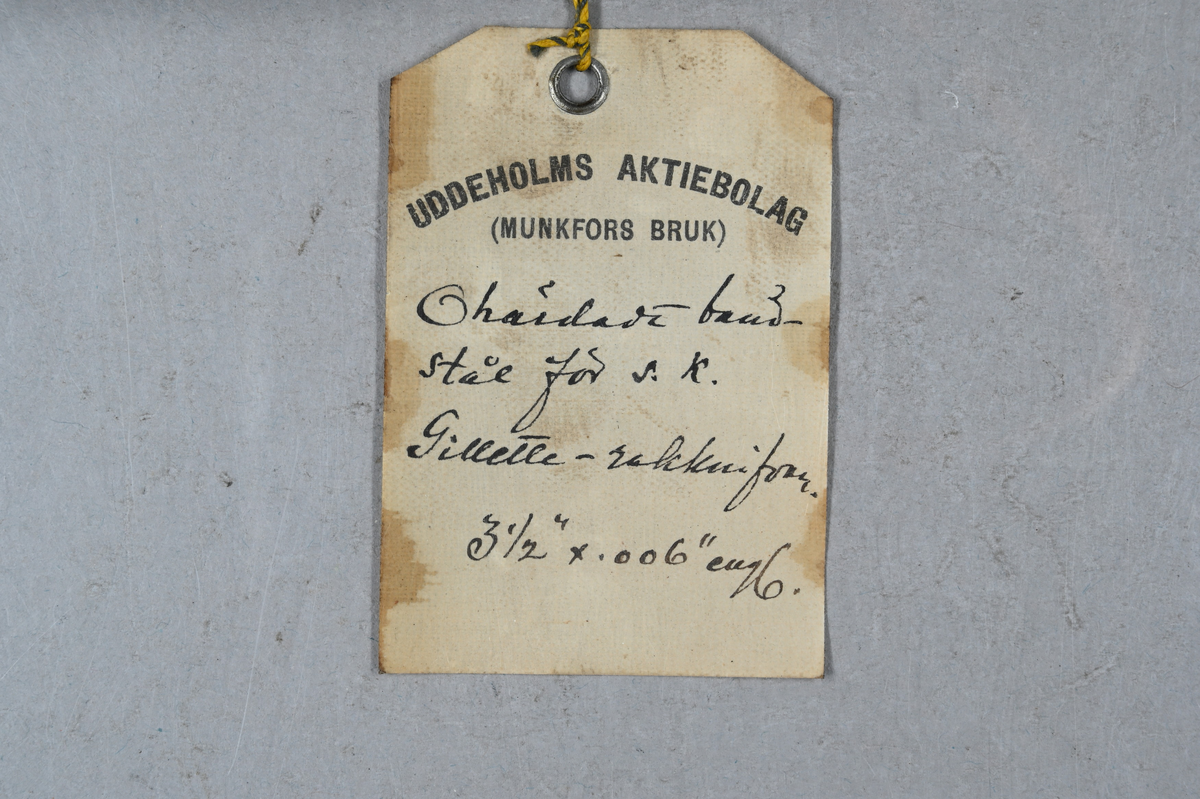 UDDEHOLMS AKTIEBOLAG
(MUNKFORS BRUK)
Ohärdadt band-
stål för s. k.
Gillette-rakknifvar.
3 1/2" x .006" engl.